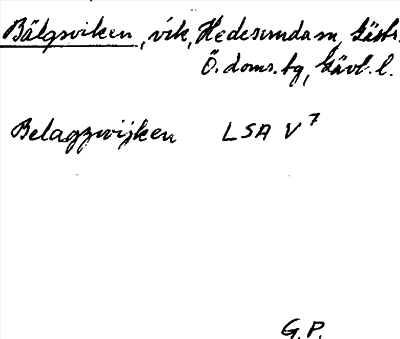 Bälgsviken, vik, Hedesunda sn, Gästr.
Ö. doms. tg, Gävl. l.
Belagzwijken LSA V 7
G. P.